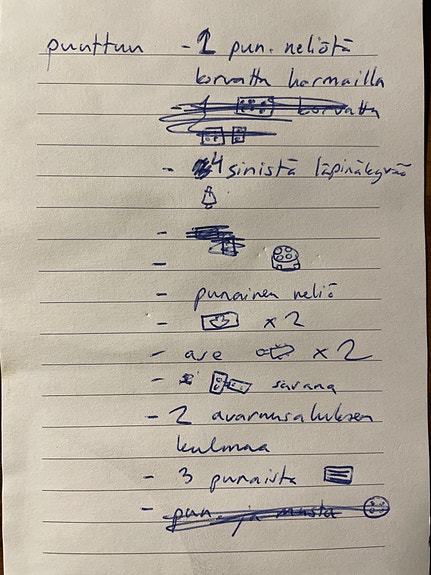 puuttuu - 2 pun. neliötä
korvattu harmailla
- 4 sinistä läpinäkyvää
-
-
- punainen neliö
- x 2
- ase x 2
- sarana
- 2 avaruusaluksen
kulmaa
- 3 punaista
- pun. ja musta